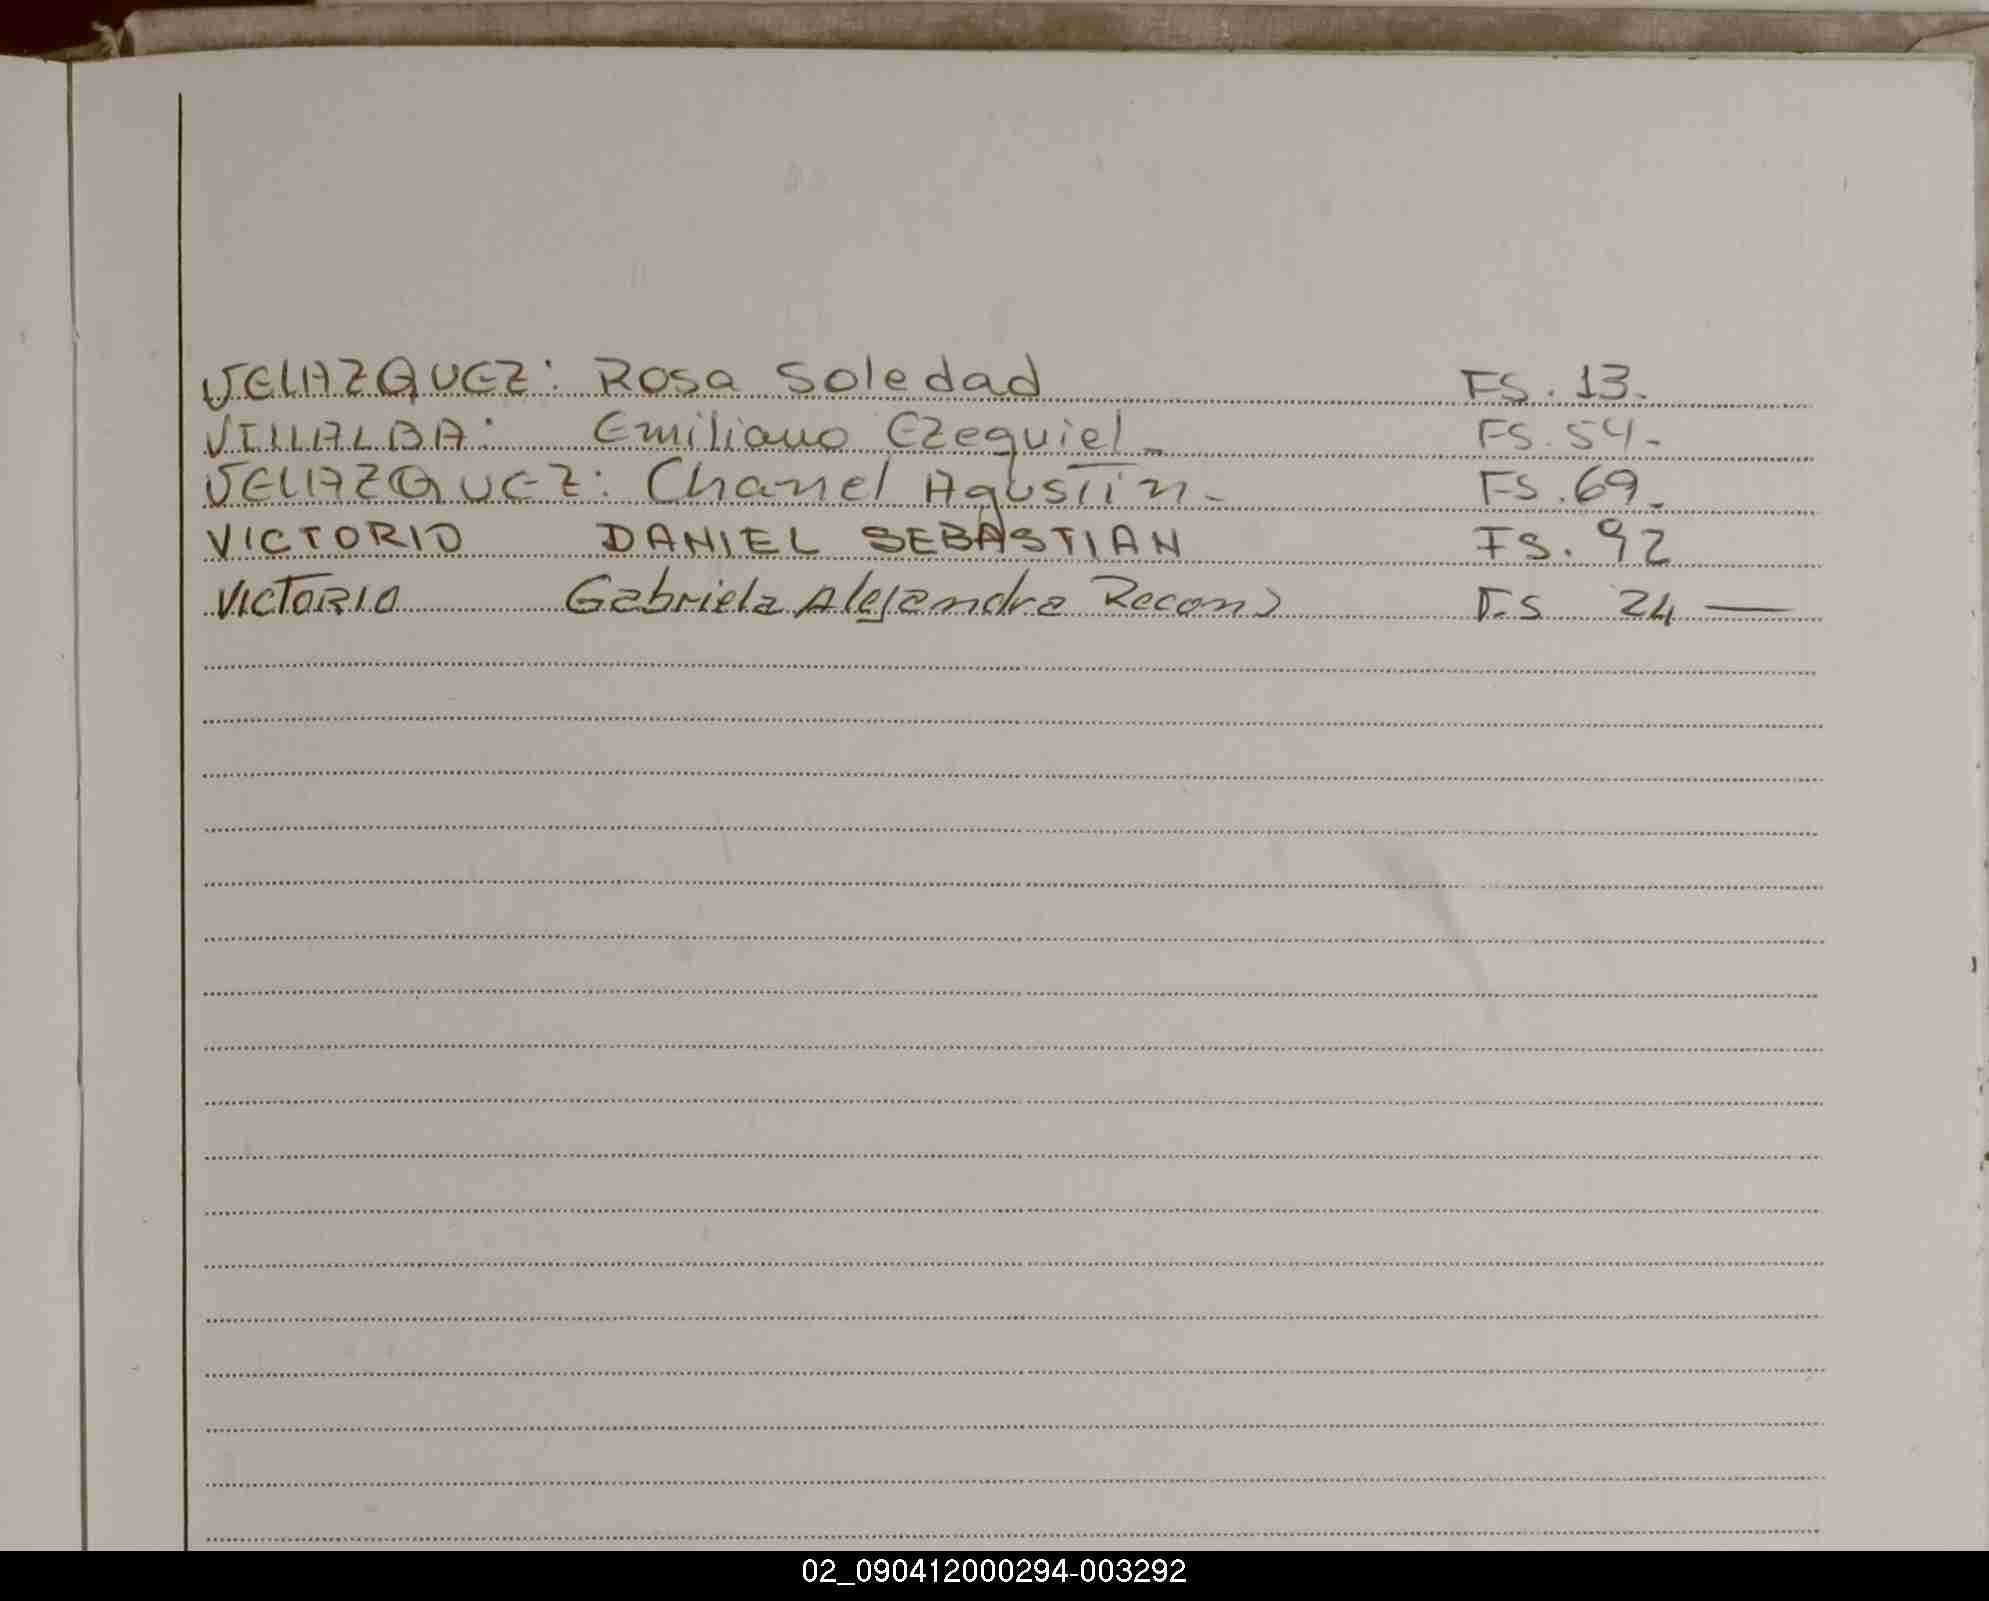 VELAZQUEZ: Rosa Soledad FS. 13.
VILLALBA: Emiliano Ezequiel - FS. 54.-
VELAZQUEZ: Chanel Agustin.- FS. 69.-
VICTORIO DANIEL SEBASTIAN FS. 92
VICTORIO Gabriela Alejandra Recon) F.S 24 —
02_090412000294-003292